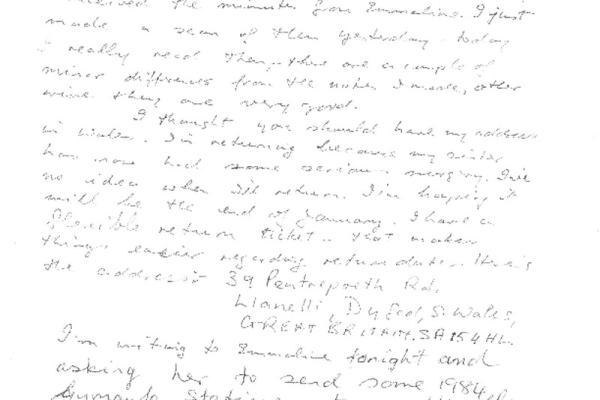 received the minutes from Emmaline. I just
made a scan of them yesterday. Today
I really read them. there are a couple of
minor differences from the notes I made, other
wise they are very good.
I thought you should have my address
in Wales. I'm returning because my sister
has now had some serious surgery. I've
no idea when I'll return. I'm hoping it
will be the end of January. I have a
flexible return ticket. that makes
things easier regarding return date. Here's
the address: 39 Pentrepoeth Rd,
Llanelli, Dyfed, S. Wales,
GREAT BRITAIN. SA15 4HL.
I'm writing to Emmaline tonight and
asking her to send some 1984